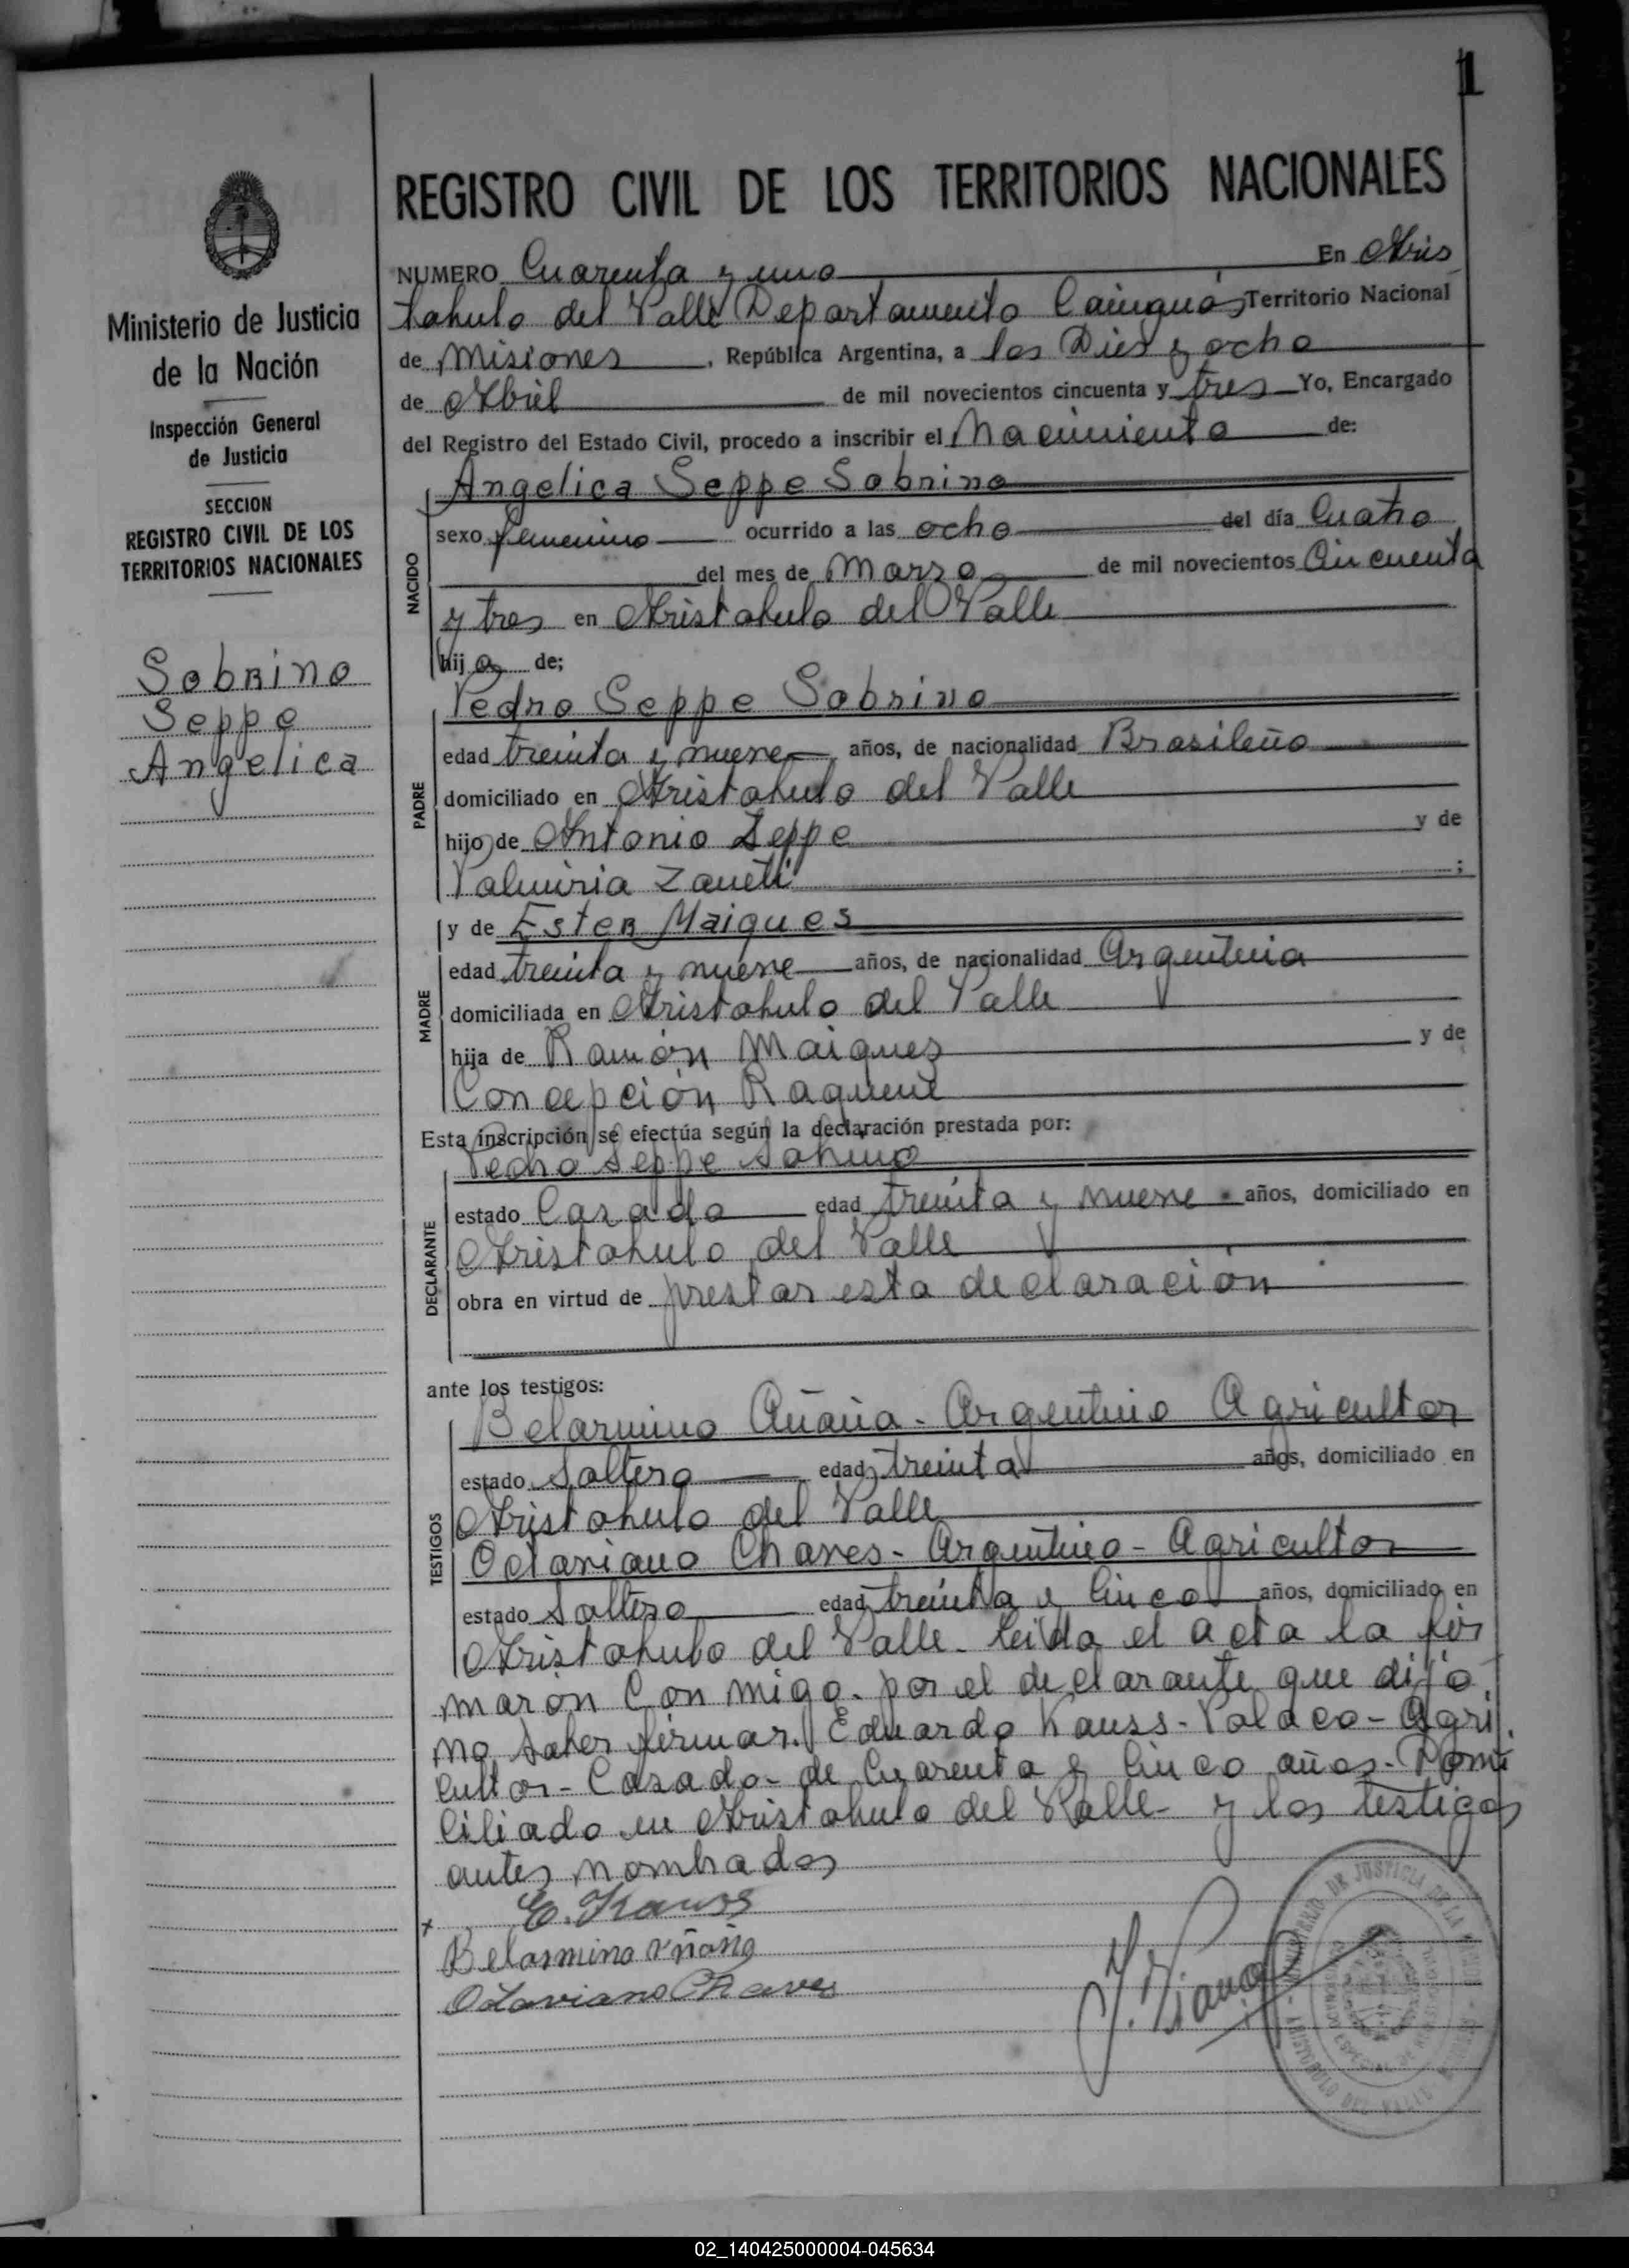 1
REGISTRO CIVIL DE LOS TERRITORIOS NACIONALES
NUMERO Cuarenta y uno En Aris
tobulo del Valle Departamento Cainguás Territorio Nacional
de Misiones, República Argentina, a los Dies y ocho
de Abril de mil novecientos cincuenta y tres Yo, Encargado
del Registro del Estado Civil, procedo a inscribir el Nacimiento de:
Angelica Seppe Sobrino
NACIDO
sexo femenino ocurrido a las ocho del día Cuatro
del mes de Marzo de mil novecientos Cincuenta
y tres en Aristobulo del Valle
hija de;
Pedro Seppe Sobrino
PADRE
edad treinta y nueve años, de nacionalidad Brasileño
domiciliado en Aristobulo del Valle
hijo de Antonio Seppe y de
Palmiria Zaneti;
MADRE
y de Ester Maiques
edad treinta y nueve años, de nacionalidad Argentina
domiciliada en Aristobulo del Valle
hija de Ramón Maiques y de
Concepción
Esta inscripción se efectúa según la declaración prestada por:
Pedro Seppe Sobrino
DECLARANTE
estado Casado edad treinta y nueve años, domiciliado en
Aristobulo del Valle
obra en virtud de prestar esta declaración
ante los testigos:
TESTIGOS
Belarmino Añaña - Argentino Agricultor
estado Soltero edad treinta años, domiciliado en
Aristobulo del Valle
Octaviano Chaves - Argentino - Agricultor
estado Soltero edad treinta y Cinco años, domiciliado en
Aristobulo del Valle - Leida el acta la fir
marón Con migo - por el declarante que dijo
no saber firmar. Eduardo Kauss - Polaco - Agri
cultor - Casado - de Cuarenta y Cinco años - Domi
ciliado en Aristobulo del Valle - y los testigos
antes nombrados
x E. Kauss
Belarmino
Otaviano Chaves
Ministerio de Justicia
de la Nación
Inspección General
de Justicia
SECCION
REGISTRO CIVIL DE LOS
TERRITORIOS NACIONALES
Sobrino
Seppe
Angelica
02_140425000004-045634